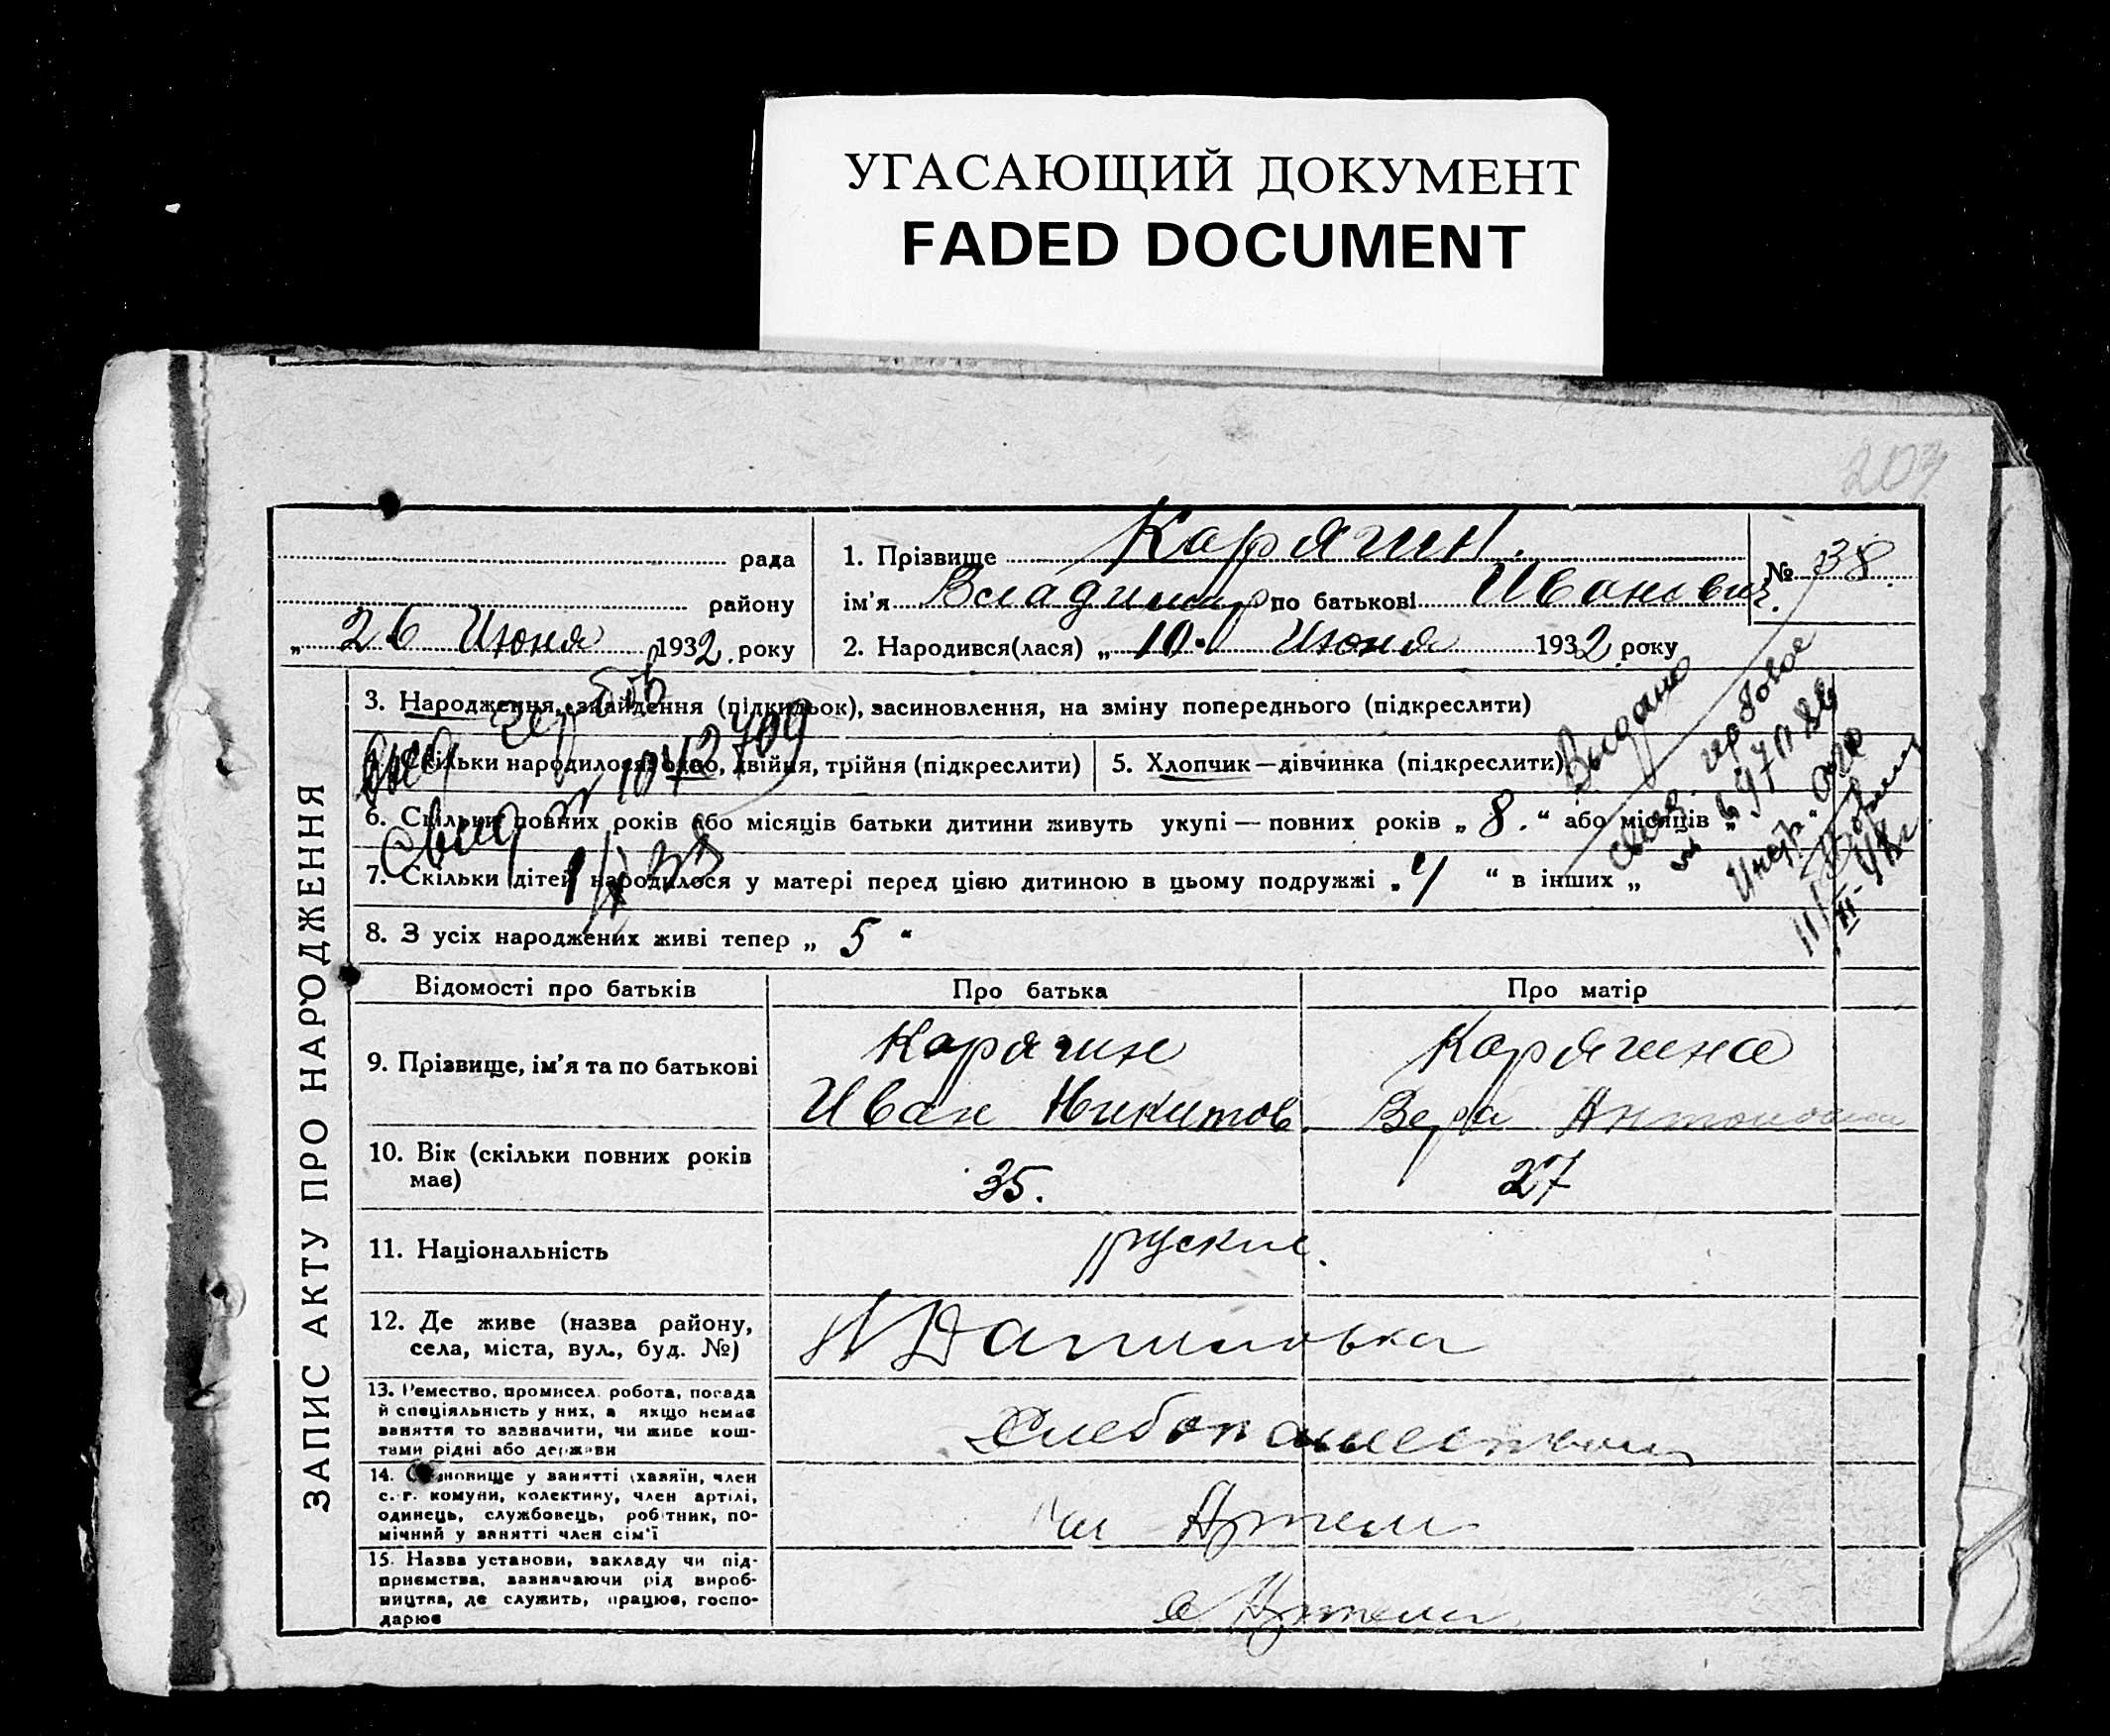 УГАСАЮЩИЙ ДОКУМЕНТ
FADED DOCUMENT
203
рада
району
„ 26 Июня 1932. року
1. Прізвище Карягин.
ім'я Владимир по батькові Иванович.
2. Народився(лася) „ 10. Июня 1932 року
№ 38.
ЗАПИС АКТУ ПРО НАРОДЖЕННЯ
3. Народження, знайдення (підкидьок), засиновлення, на зміну попереднього (підкреслити)
скільки народилося: одно, двійня, трійня (підкреслити)
5. Хлопчик—дівчинка (підкреслити)
6. Скільки повних років або місяців батьки дитини живуть укупі — повних років „ 8. “ або місяців „
7. Скільки дітей народилося у матері перед цією дитиною в цьому подружжі „ 4 “ в інших „
8. З усіх народжених живі тепер „ 5 “
Выдано
свид.
1042709
Відомості про батьків
Про батька
Про матір
9. Прізвище, ім'я та по батькові
Карягин
Иван Никитов.
Карягина
Вера Антоновна
10. Вік (скільки повних років
має)
35.
27
11. Національність
руские.
12. Де живе (назва району,
села, міста, вул., буд. №)
Н Даниловка
13. Ремество, промисел, робота, посада
й спеціяльність у них, а якщо немає
заняття то зазначити, чи живе кош-
тами рідні або держави
Хлебопашеством
14. Становище у занятті (хазяїн, член
с.-г. комуни, колективу, член артілі,
одинець, службовець, робітник, по-
мічний у занятті член сім'ї
Артели
15. Назва установи, закладу чи під-
приємства, зазначаючи рід вироб-
ництва, де служить, працює, госпо-
дарює
в Артели